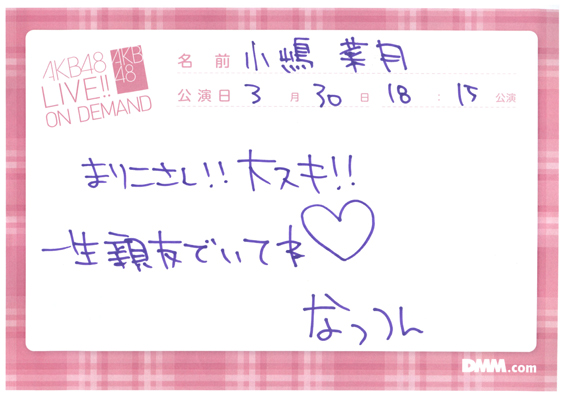 AKB48
LIVE!!
ON DEMAND
AKB
48
名前 小嶋 菜月
公演日 3 月 30 日 18 : 15 公演
まりこさん!! 大スキ!!
一生親友でいてネ♡
なっつん
DMM.com